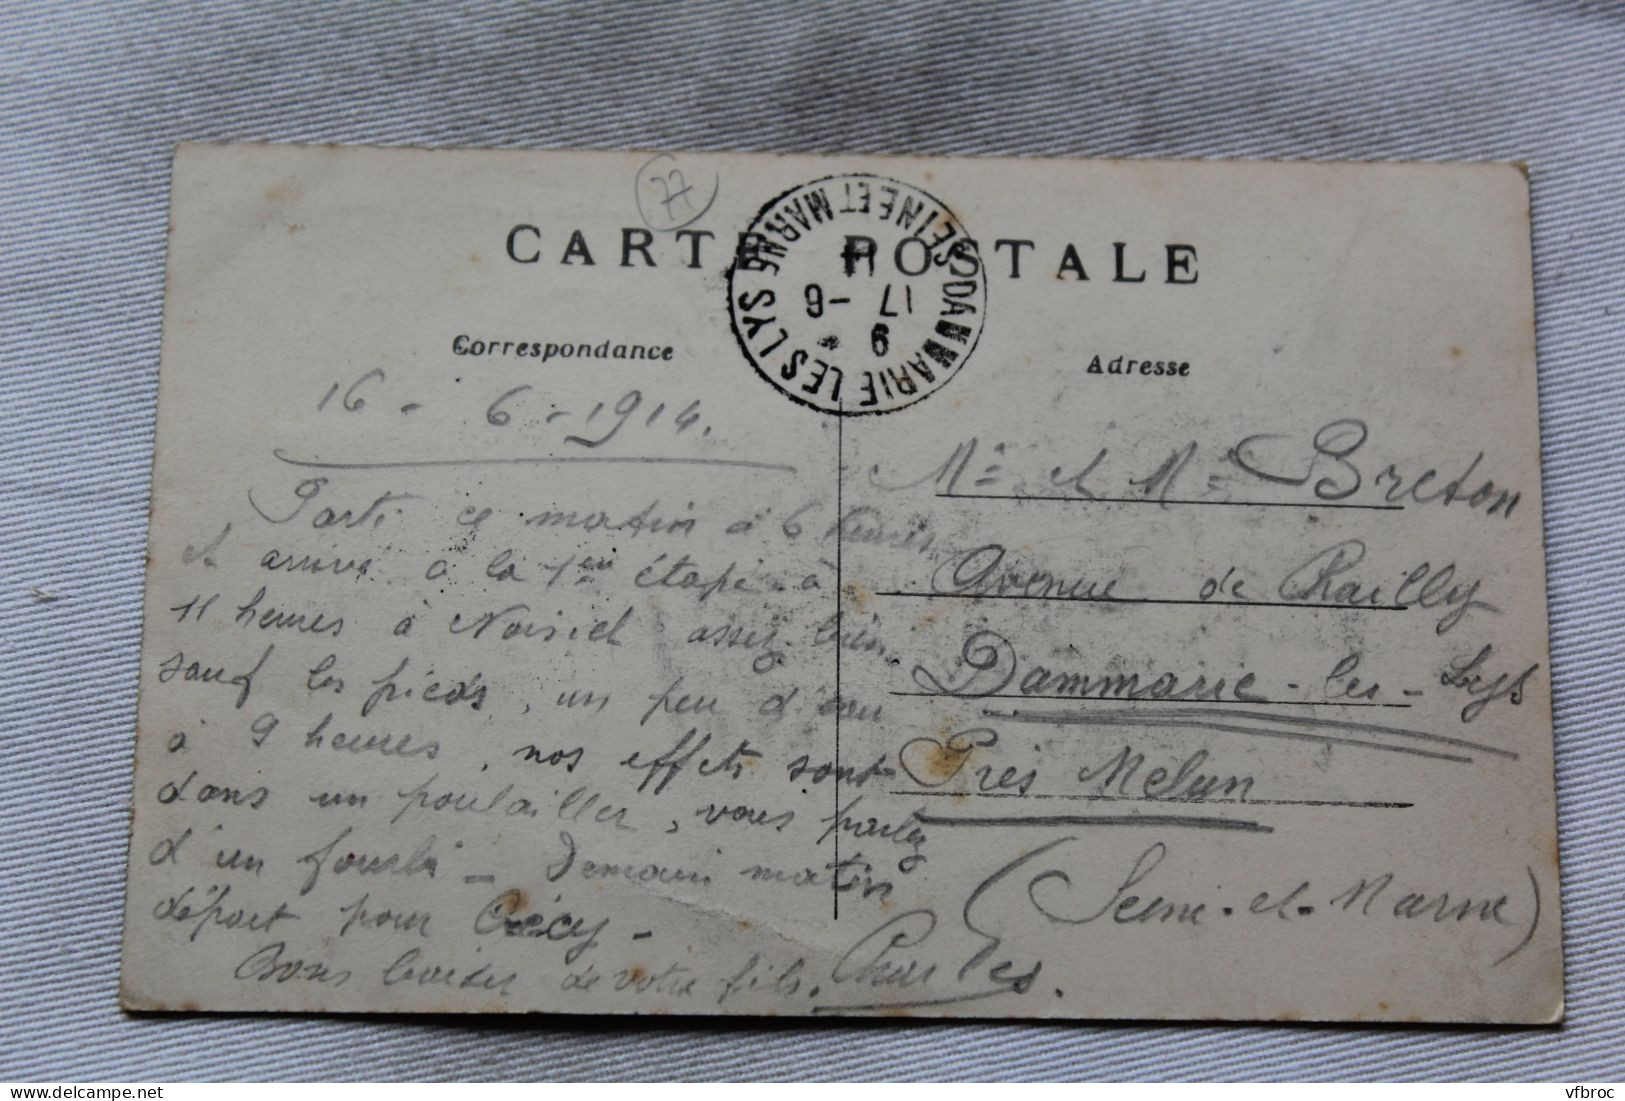 77
CARTE POSTALE
DAMMARIE LES LYS
SEINE ET MARNE
9 *
17 - 6
14
Correspondance
Adresse
16 - 6 - 1914.
Parti ce matin à 6 heures
et arrivé à la 1ere étape à
11 heures à Noisiel assez bien
sauf les pieds, un peu d'eau
à 9 heures, nos effets sont
dans un poulailler, vous parlez
d'un fourbi - Demain matin
départ pour Crécy -
Bons baisers de votre fils. Charles.
Mr et Mme Breton
Avenue de Chailly
Dammarie-les-Lys
Près Melun
(Seine-et-Marne)
vfbroc